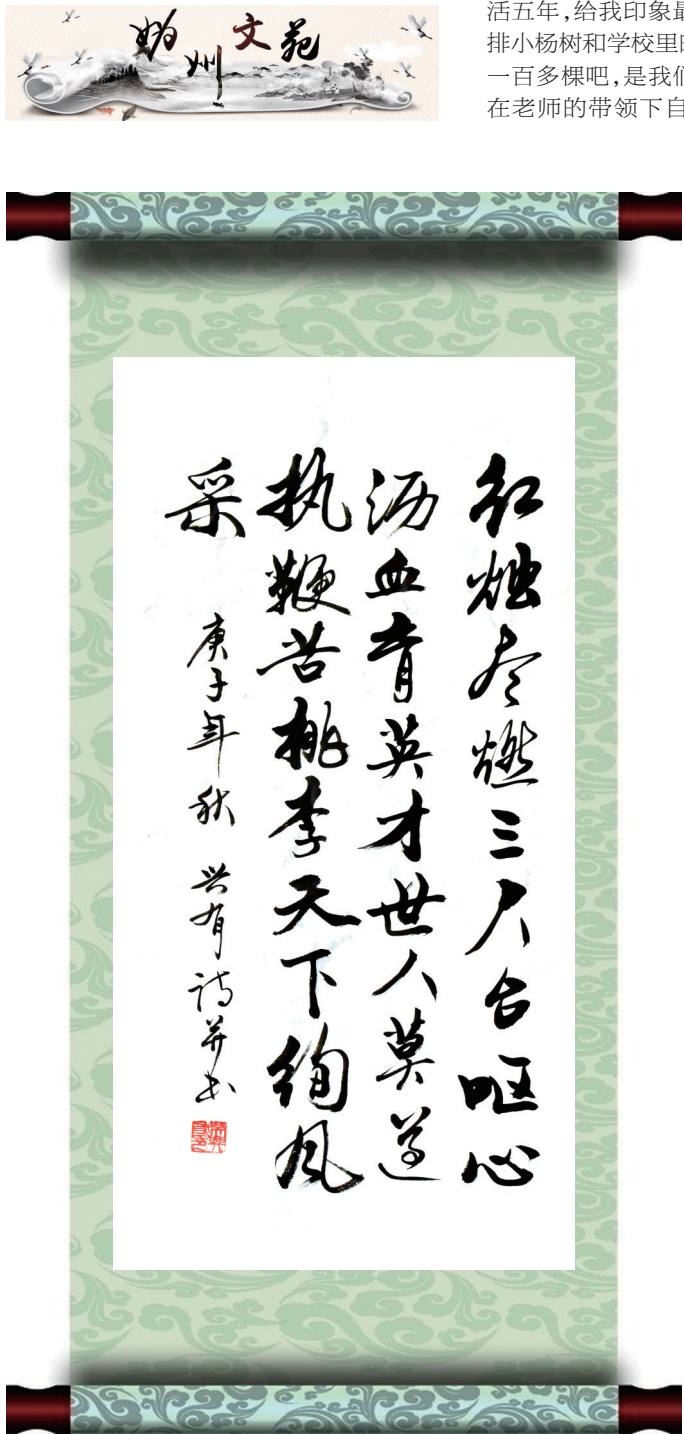 妫川文苑
活五年，给我印象最
排小杨树和学校里
一百多棵吧，是我们
在老师的带领下自
红烛尽燃三尺台呕心
沥血育英才世人莫道
执鞭苦桃李天下绚风
采
庚子年秋 兴有诗并书